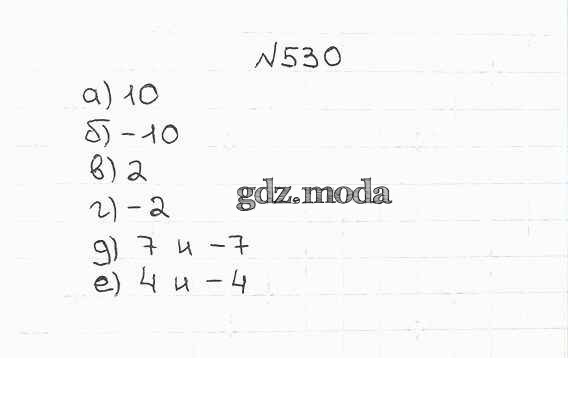 №530
а) 10
б) -10
в) 2
gdz.moda
г) -2
д) 7 и -7
е) 4 и -4